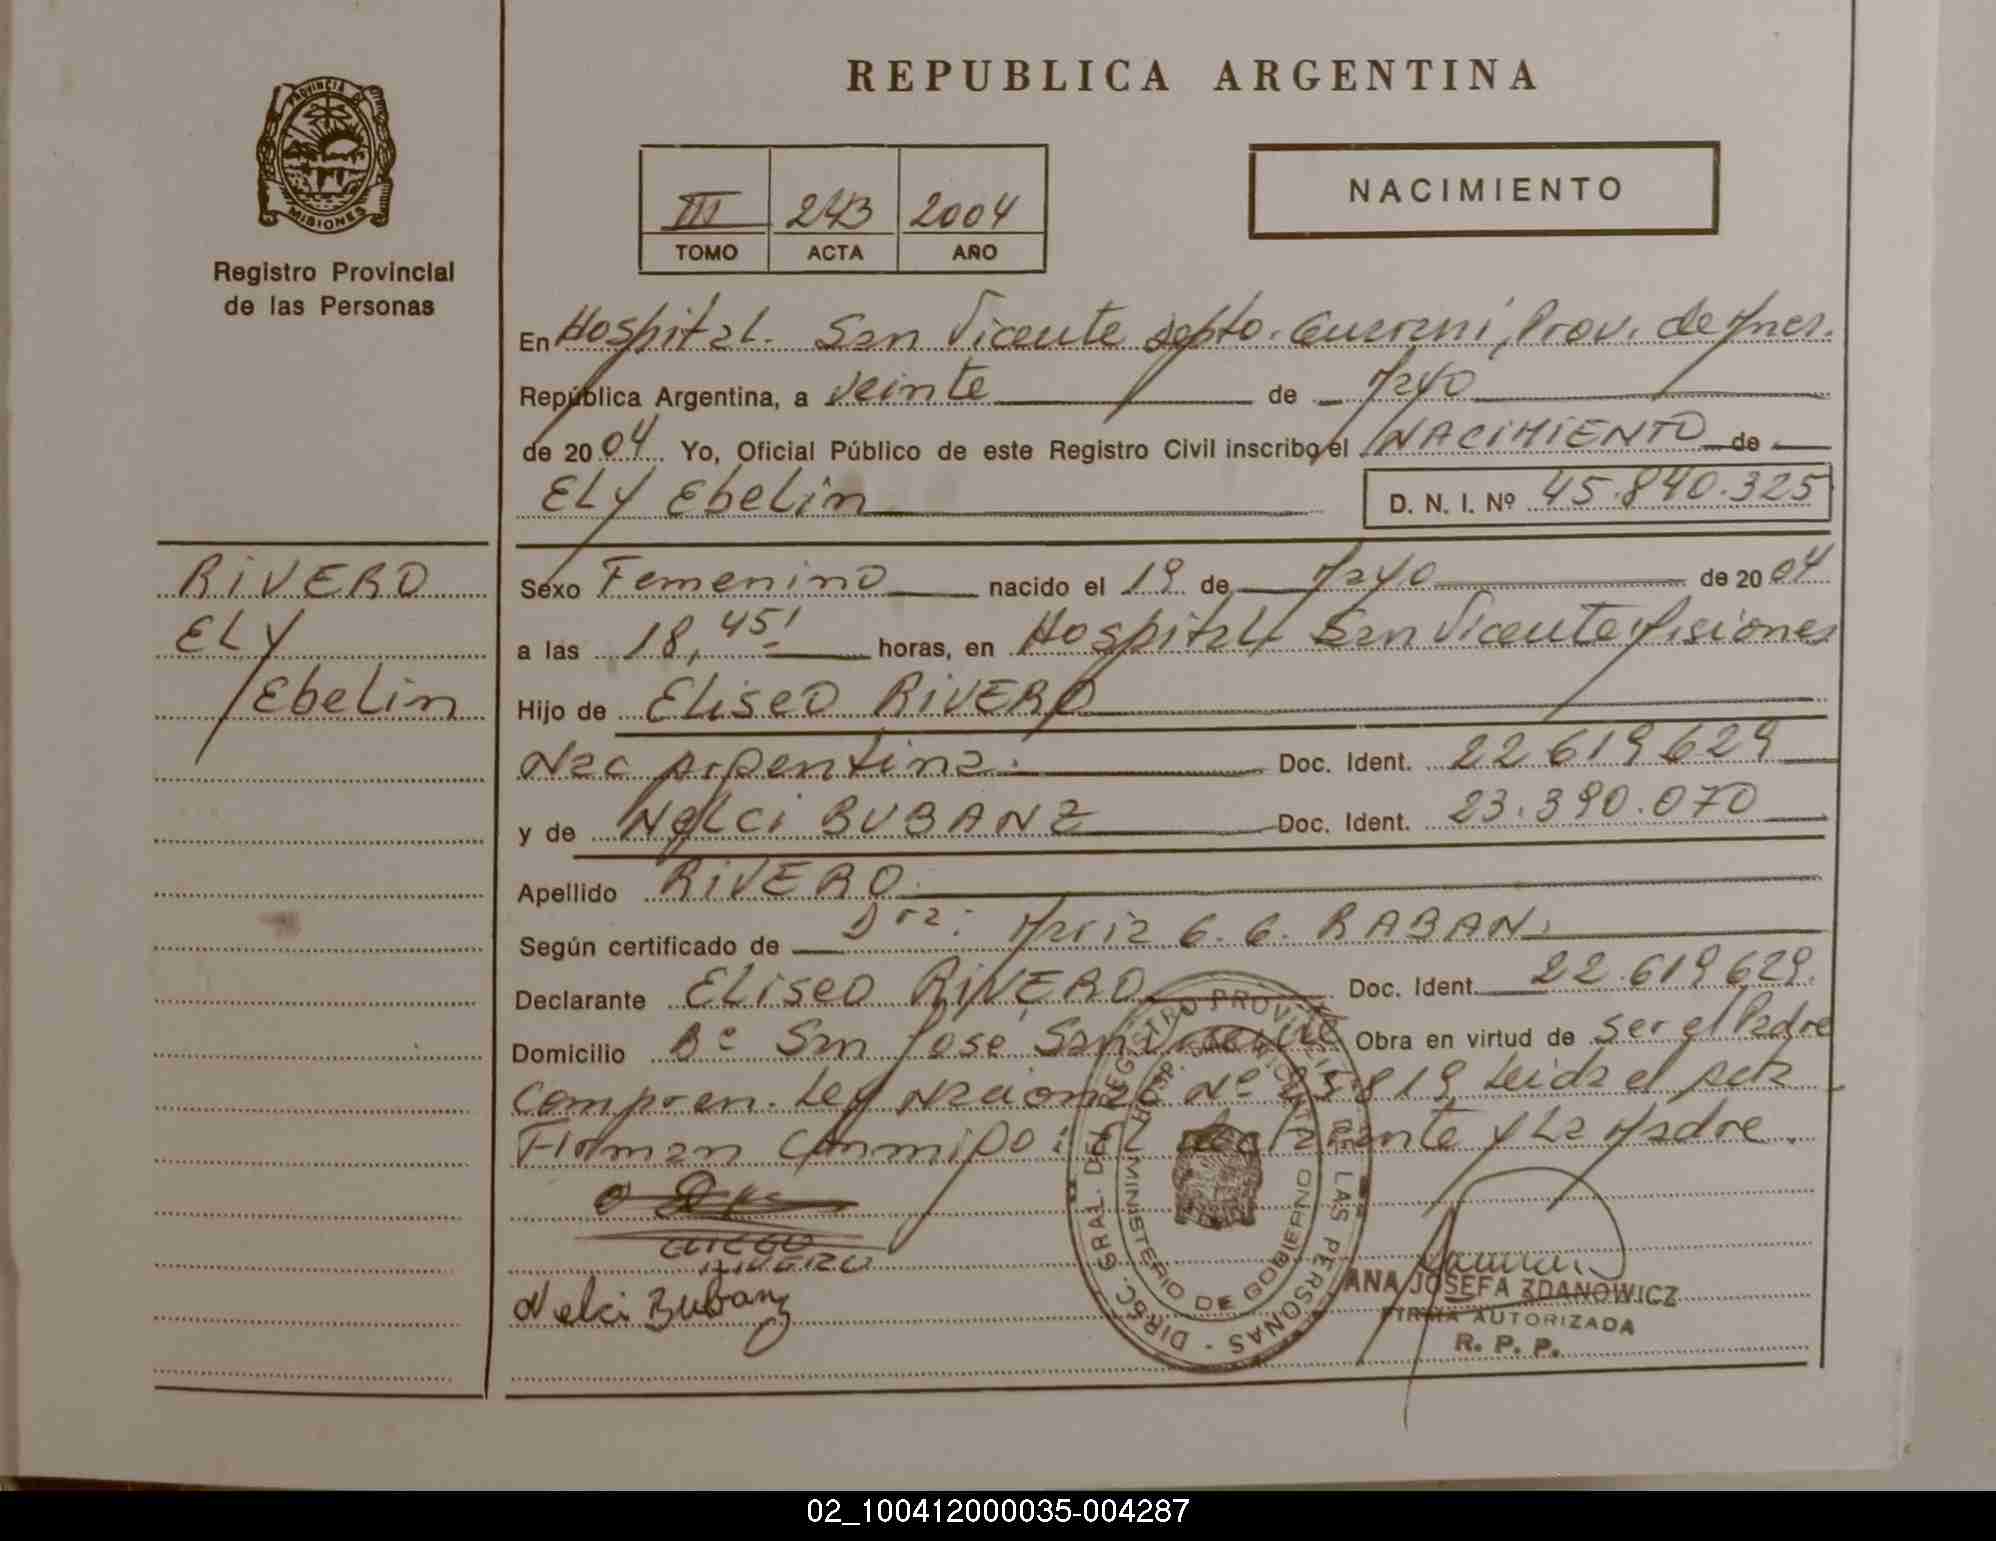 REPUBLICA ARGENTINA
PROVINCIA DE MISIONES
Registro Provincial
de las Personas
III 243 2004
TOMO ACTA AÑO
NACIMIENTO
En Hospital. San Vicente Depto. Guarani, Prov. de Mnes.
República Argentina, a veinte de Mayo
de 2004 Yo, Oficial Público de este Registro Civil inscribo el NACIMIENTO de
ELY Ebelin D. N. I. Nº 45.840.325
RIVERO
ELY
Ebelin
Sexo Femenino nacido el 19 de Mayo de 2004
a las 18,45' horas, en Hospital San Vicente Misiones
Hijo de Eliseo RIVERO
Nac Argentina. Doc. Ident. 22619629
y de Nelci BUBANZ Doc. Ident. 23.390.070
Apellido RIVERO.
Según certificado de Dra: Maria G. G. RABAN.
Declarante Eliseo RIVERO Doc. Ident. 22.619629.
Domicilio Bº San José San Vicente Obra en virtud de ser el Padre
Compren. Ley Nacional Nº 25.819, Leida el Acta
Firman Conmigo: el declarante y La Madre.
ELISEO
RIVERO
Nelci Bubanz
DIREC. GRAL. DEL REGISTRO PROVINCIAL DE LAS PERSONAS
MINISTERIO DE GOBIERNO
ANA JOSEFA ZDANOWICZ
FIRMA AUTORIZADA
R. P. P.
02_100412000035-004287